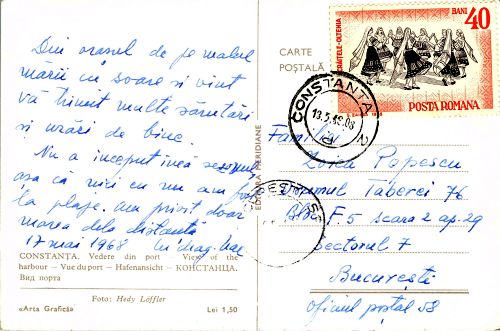 Din orașul de pe malul
mării cu soare și vînt
vă trimit multe sărutări
și urări de bine.
Nu a început încă sezonul
așa că nici eu nu am fost
la plaje. Am privit doar
marea dela distanță
17 mai 1968
CONSTANȚA. Vedere din port - View of the
harbour - Vue du port - Hafenansicht - КОНСТАНЦА.
Вид порта
Foto: Hedy Löffler
«Arta Grafică» Lei 1,50
EDITURA MERIDIANE
CARTE
POȘTALĂ
BANI 40
POSTA ROMANA
CONSTANȚA 2
Familia
Zoica Popescu
Drumul Taberei 76
Bloc F.5 scara 2 ap. 29
Sectorul 7
București
Oficiul poștal 58